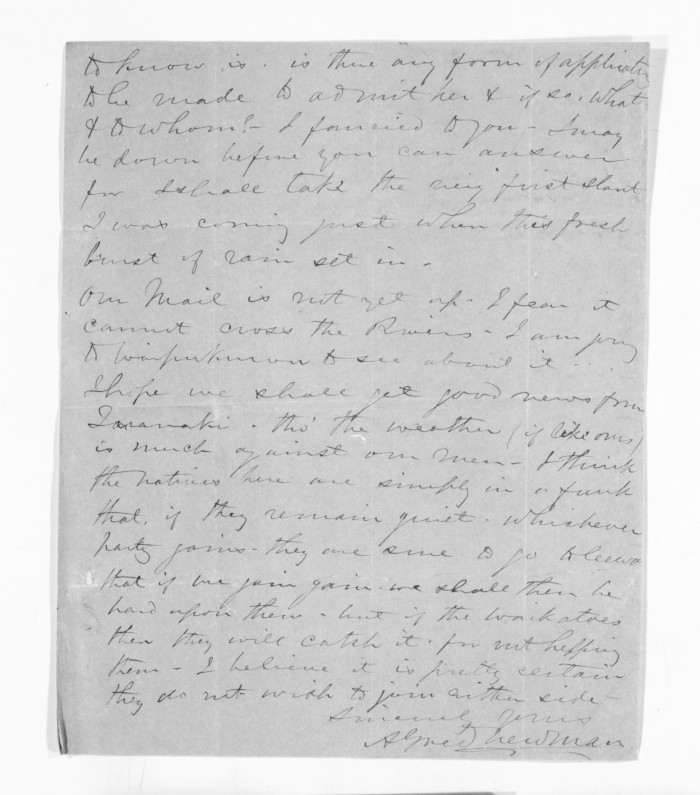 to know is. is there any form of application
to be made to admit her & if so. What
& to whom? - I fancied to you - I may
be down before you can answer
for I shall take the very first slant
I was coming just when this fresh
burst of rain set in -
Our Mail is not yet up. I fear it
cannot cross the Rivers - I am going
to Waipukurau to see about it ...
I hope we shall get good news from
Taranaki. tho' the weather (if like ours)
is much against our men - I think
the natives here are simply in a funk
that, if they remain quiet. whichever
party joins - they are sure to go to leeward
that if we join gain. we shall then be
hard upon them - but if the waikatoes
then they will catch it. for not helping
them - I believe it is pretty certain
they do not wish to join either side -
Sincerely yours
Alfred Newman